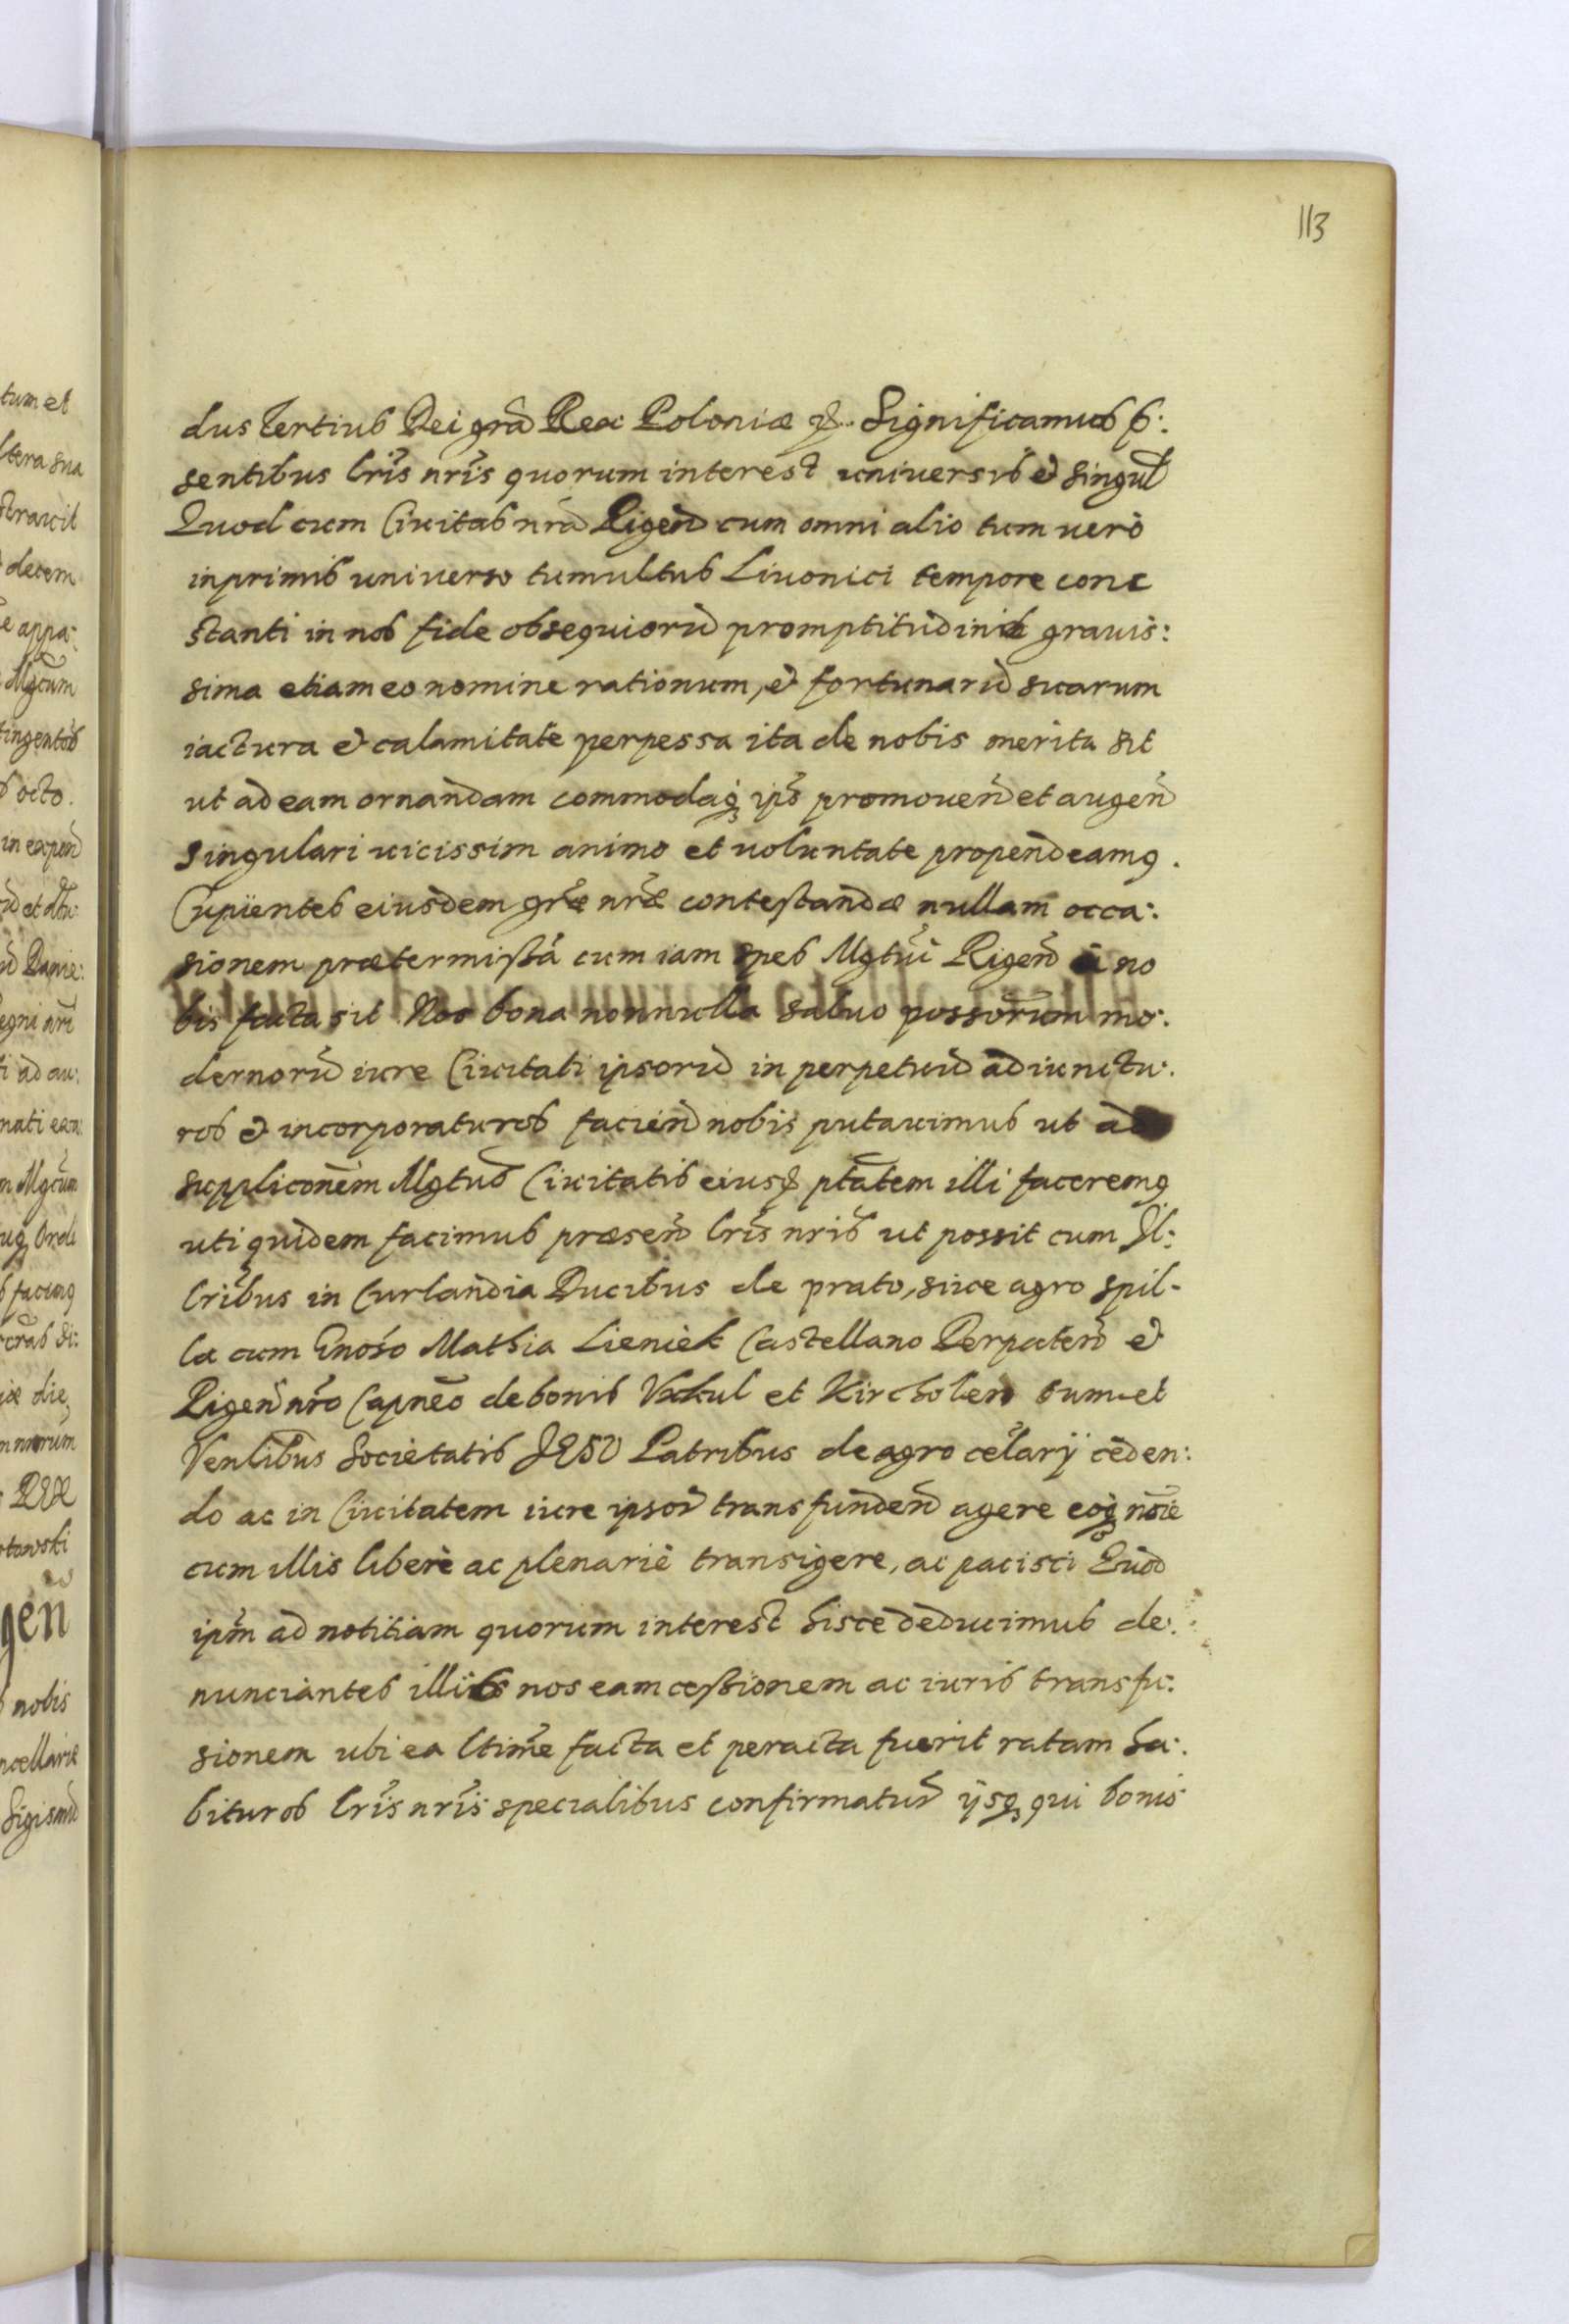 113
dus Tertius Dei grã Rex Poloniæ &. Significamus p:
sentibus lrĩs nrĩs quorum interest universis et singul
Quod cum Civitas nrã Rigeñ cum omni alio tum verò
inprimis universo tumultus Livonici tempore con
stanti in nos fide obsequiorũ promptitudinis gravis:
sima etiam eo nomine rationum, et fortunarũ suarum
iactura et calamitate perpessa ita de nobis merita sit
ut ad eam ornandam commodaq; ips̃ promoueñ et augeñ
singulari vicissim animo et voluntate propendeamq.
Cupientes eiusdem græ nræ contestandæ nullam occa:
sionem prætermissã cum iam spes Mgtui Rigeñ à no
bis facta sit Nos bona nonnulla salvo possorum mo:
dernorũ iure Civitati ipsorũ in perpetuũ adiunctu:
ros et incorporaturos facieñ nobis putavimus ut ad
suppliconẽm Mgtus Civitatis eiusd ptãtem illi faceremq
uti quidem facimus præseñ lrĩs nrĩs ut possit cum Il:
lrĩbus in Curlandia Ducibus de prato, sive agro spil-
la cum Gnoso Mathia Lieniek Castellano Derpateñ et
Rigeñ nrõ Capnẽo de bonis Vxkul et Kircholen tum et
Venlibus Societatis JESU Patribus de agro celarÿ ceden:
do ac in Civitatem iure ipsor transfundeñ agere eoq; noĩe
cum illis liberè ac plenariè transigere, ac pacisci Quod
ipm̃ ad notitiam quorum interest hisce deducimus de:
nunciantes illis nos eam cessionem ac iuris transfu:
sionem ubi ea ltimẽ facta et peracta fuerit ratam ha:
bituros lrĩs nrĩs specialibus confirmatur ijsq; qui bonis